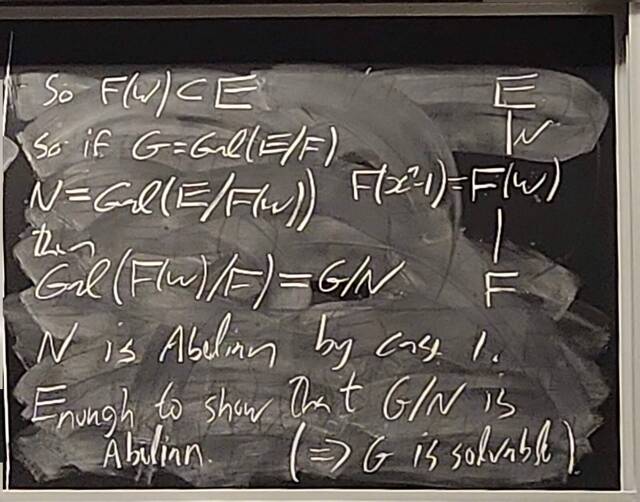 So F(ω) ⊂ E
So if G = Gal(E/F)
N = Gal(E/F(ω)) F(xⁿ-1) = F(ω)
then
Gal(F(ω)/F) = G/N
N is Abelian by case 1.
Enough to show that G/N is
Abelian. (⇒ G is solvable).
E
| N
|
F